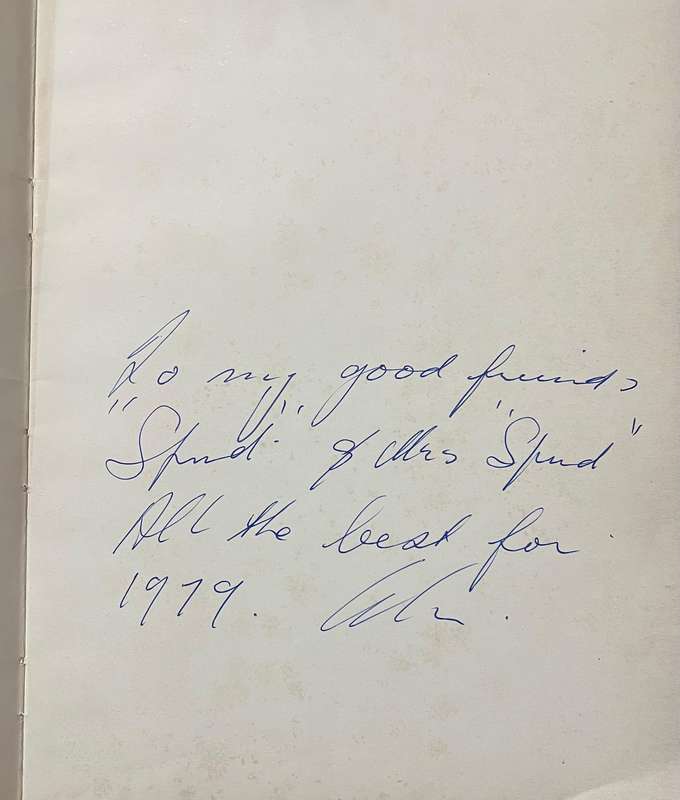 To my good friends
"Spud" & Mrs "Spud"
All the best for
1979.